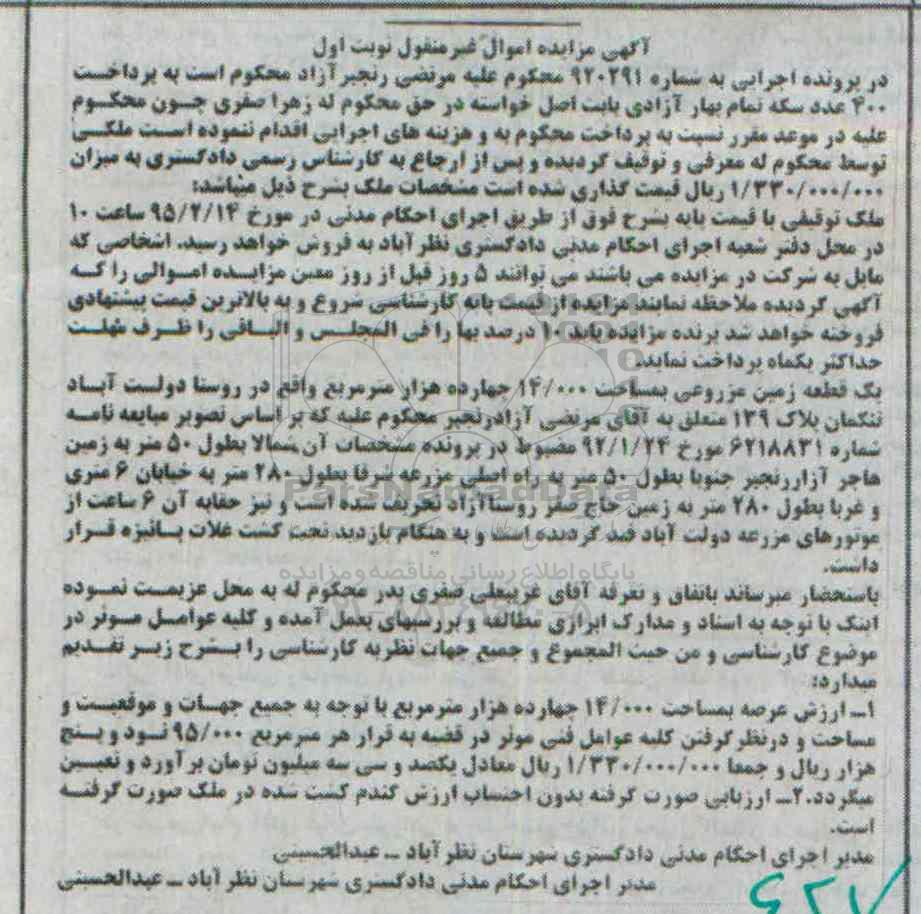 آگهی مزایده اموال غیر منقول نوبت اول
در پرونده اجرایی به شماره ۹۲۰۲۹۱ محکوم علیه مرتضی رنجبر آزاد محکوم است به پرداخت
۴۰۰ عدد سکه تمام بهار آزادی بابت اصل خواسته در حق محکوم له زهرا صفری چون محکوم
علیه در موعد مقرر نسبت به پرداخت محکوم به و هزینه های اجرایی اقدام ننموده است ملکی
توسط محکوم له معرفی و توقیف گردیده و پس از ارجاع به کارشناس رسمی دادگستری به میزان
۱/۳۳۰/۰۰۰/۰۰۰ ریال قیمت گذاری شده است مشخصات ملک بشرح ذیل میباشد:
ملک توقیفی با قیمت پایه بشرح فوق از طریق اجرای احکام مدنی در مورخ ۹۵/۲/۱۴ ساعت ۱۰
در محل دفتر شعبه اجرای احکام مدنی دادگستری نظر آباد به فروش خواهد رسید. اشخاصی که
مایل به شرکت در مزایده می باشند می توانند ۵ روز قبل از روز معین مزایده اموالی را که
آگهی گردیده ملاحظه نمایند مزایده از قیمت پایه کارشناسی شروع و به بالاترین قیمت پیشنهادی
فروخته خواهد شد برنده مزایده باید ۱۰ درصد بها را فی المجلس و الباقی را ظرف مهلت
حداکثر یکماه پرداخت نماید.
یک قطعه زمین مزروعی بمساحت ۱۴/۰۰۰ چهارده هزار مترمربع واقع در روستا دولت آباد
تنکمان پلاک ۱۳۹ متعلق به آقای مرتضی آزادرنجبر محکوم علیه که بر اساس تصویر مبایعه نامه
شماره ۶۲۱۸۸۳۱ مورخ ۹۲/۱/۲۴ مضبوط در پرونده مشخصات آن شمالا بطول ۵۰ متر به زمین
هاجر آزاررنجبر جنوبا بطول ۵۰ متر به راه اصلی مزرعه شرقا بطول ۲۸۰ متر به خیابان ۶ متری
و غربا بطول ۲۸۰ متر به زمین حاج صفر روستا آزاد تحریف شده است و نیز حقابه آن ۶ ساعت از
موتورهای مزرعه دولت آباد قید گردیده است و به هنگام بازدید تحت کشت غلات پائیزه قرار
داشت.
باستحضار میرساند باتفاق و تعرفه آقای غریبعلی صفری پدر محکوم له به محل عزیمت نموده
اینک با توجه به اسناد و مدارک ابرازی مطالعه و بررسیهای بعمل آمده و کلیه عوامل موثر در
موضوع کارشناسی و من حیث المجموع و جمیع جهات نظریه کارشناسی را بشرح زیر تقدیم
میدارد:
۱ـ ارزش عرصه بمساحت ۱۴/۰۰۰ چهارده هزار مترمربع با توجه به جمیع جهات و موقعیت و
مساحت و درنظر گرفتن کلیه عوامل فنی موثر در قضیه به قرار هر مترمربع ۹۵/۰۰۰ نود و پنج
هزار ریال و جمعا ۱/۳۳۰/۰۰۰/۰۰۰ ریال معادل یکصد و سی سه میلیون تومان برآورد و تعیین
میگردد.۲ـ ارزیابی صورت گرفته بدون احتساب ارزش گندم کشت شده در ملک صورت گرفته
است.
مدیر اجرای احکام مدنی دادگستری شهرستان نظر آباد ـ عبدالحسینی
مدیر اجرای احکام مدنی دادگستری شهرستان نظر آباد ـ عبدالحسینی
۶۲۷
ParsNamadData
پایگاه اطلاع رسانی مناقصه و مزایده